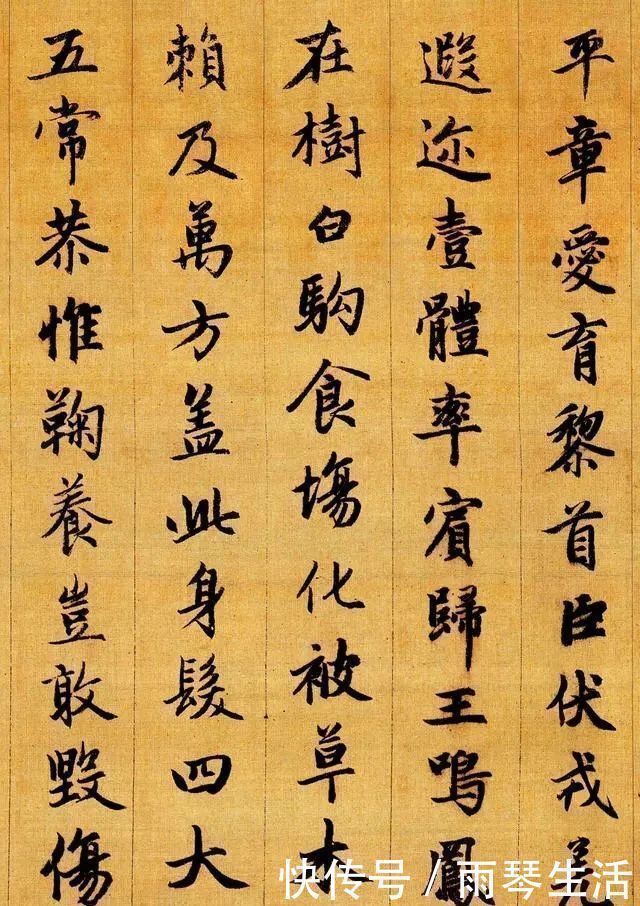 平章愛育黎首臣伏戎羌
遐迩壹體率賓歸王鳴鳳
在樹白駒食場化被草木
賴及萬方盖此身髮四大
五常恭惟鞠養豈敢毀傷
快传号/雨琴生活